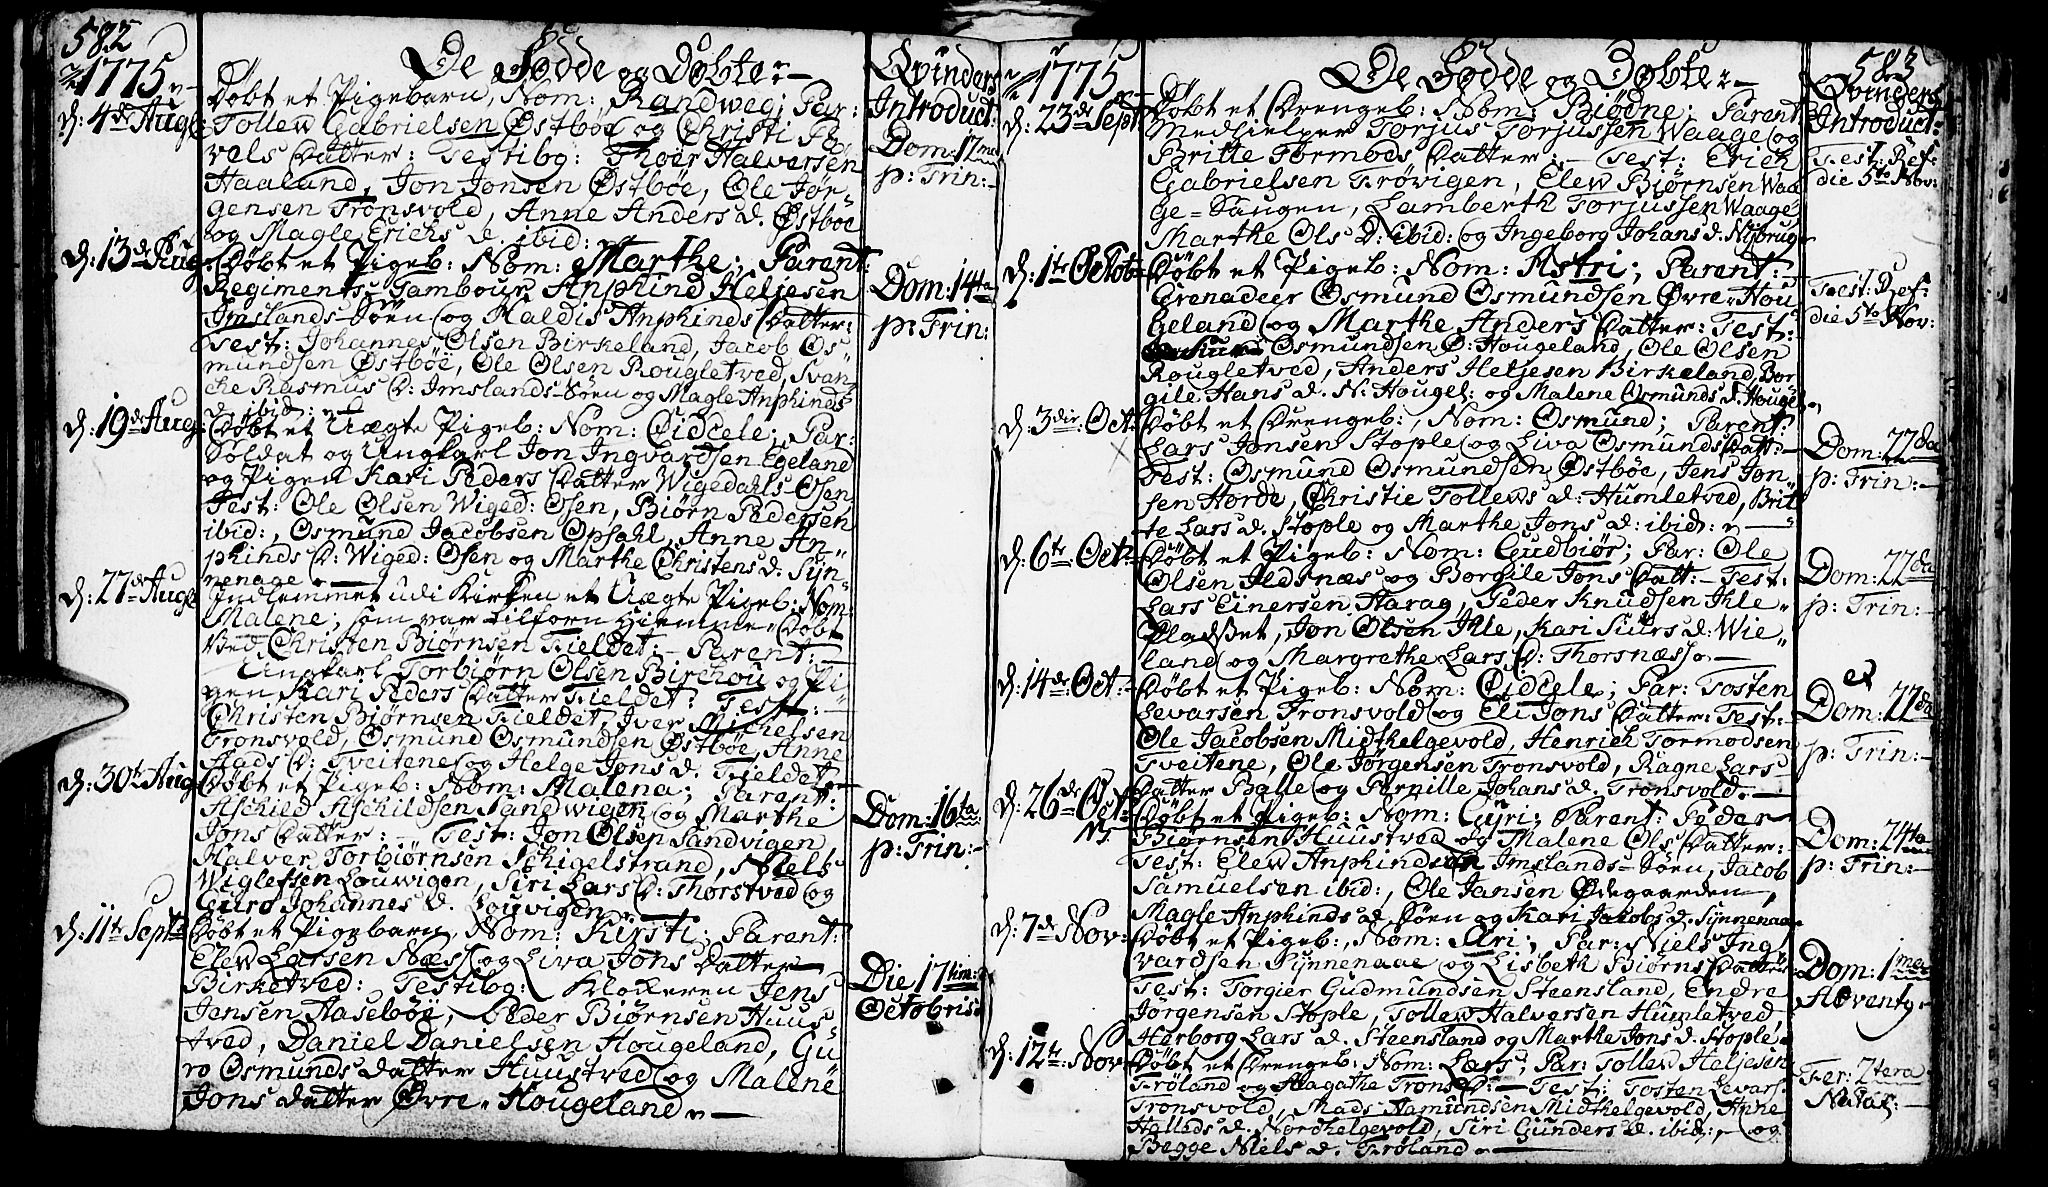 582
1775
De Fødde og Døbte
Qvinders
Introduct:
d: 4de Aug:
Døbt et Pigebarn, Nom: Randweg; Par:
Tollew Gabrielsen Østbøe og Christi
vels Datter: Testibg: Thoer Halversen
Haaland, Jon Jonsen Østbøe, Ole Jør
gensen Tronsvold, Anne Anders d. Østbøe
og Magle Erichs d. ibid:
Dom: 17ma
p: Trin:
d: 13de Aug
Døbt et Pigeb: Nom: Marthe; Parent:
Regiments Tambour Anphind Heljesen
Imslands-Søen og Maldis Anphinds Datter:
Test: Johannes Olsen Birkeland, Jacob Os
mundsen Østbøe, Ole Olsen Rougletved, Svan
che Rasmus D: Imslands-Søen og Magle Anphinds
d. ibid:
Dom: 14ta
p: Trin:
d: 19de Aug
Døbt et Uægte Pigeb: Nom: Cidcele; Par:
Soldat og Ungkarl Jon Ingvardsen Egeland
og Pigen Kari Peders Datter Wigedahls-Osen
Test: Ole Olsen Wiged: Osen, Biørn Pedersen
ibid:, Osmund Jacobsen Opsahl, Anne An
phinds D: Wiged: Osen og Marthe Christens d. Syn
nenage
d: 27de Aug
Indlemmet udi Kirken et Uægte Pigeb: Nom:
Malene; som var tilforn Hiemme-Døbt
Ved Christen Biørnsen Fieldet: Parent:
Ungkarl Torbiørn Olsen Birchou og Pi
gen Kari Peders Datter Fieldet: Test:
Christen Biørnsen Fieldet, Iver Michelsen
Tronsvold, Osmund Osmundsen Østbøe, Anne
Mads D: Tveitene og Helge Jons d. Fieldet
d: 30te Aug
Døbt et Pigeb: Nom: Malena; Parent:
Aschild Aschildsen Sandwigen og Marthe
Jons Datter: Test: Jon Olsen Sandvigen
Halver Torbiørnsen Schigelstrand, Niels
Wiglefsen Louwigen, Siri Lars D: Thorstved og
Guro Johannes d. Louvigen
Dom: 16ta
p: Trin:
d: 11te Sept
Døbt et Pigebarn, Nom: Kirsti; Parent:
Elew Larsen Næss og Liva Jons Datter
Birketved: Testibg: Klockeren Jens
Jensen Haselbøe, Peder Biørnsen Huus
tved, Daniel Danielsen Hougeland, Gu
ro Osmunds datter Huustved og Malene
Jons datter Øvre-Hougeland
Die 17tima
Octobris
1775
De Fødde og Døbte
583
Qvinders
Introduct:
d: 23de Sept
Døbt et Drengeb: Nom: Biødne; Parent
Medhielper Torjus Torjussen Waage og
Britte Tormods Datter: Test: Erich
Gabrielsen Frøvigen, Elew Biørnsen Waa
ge-Saugen, Lamberth Torjussen Waage
Marthe Ols D: ibid: og Ingeborg Johans d. Nybrug
Fest: Ref:
die 5to Nov:
d: 1te Octob
Døbt et Pigeb: Nom: Astri; Parent:
Grenadeer Osmund Osmundsen Øvre-Hou
geland og Marthe Anders Datter: Test:
Osmundsen Ø: Hougeland, Ole Olsen
Rougletved, Anders Heljesen Birkeland, Bor
gile Hans d. N: Hougel: og Malene Osmunds d. Hougel
Fest: Ref:
die 5to Nov:
d: 3die Oct
Døbt et Drengeb:, Nom: Osmund; Parent:
Lars Jonsen Stople og Liva Osmunds Datt:
Test: Osmund Osmundsen Østbøe, Jens Jon
sen Horde, Christie Tollews d: Humletved, Brit
te Lars d. Stople og Marthe Jons d: ibid:
Dom: 22da
p: Trin:
d: 6te Oct
Døbt et Pigeb: Nom: Gudbiør; Par: Ole
Olsen Ildsnæs og Borgile Jons Datt: Test:
Lars Einersen Harag, Peder Knudsen Ihle
pladset, Jon Olsen Ihle, Kari Siurs d: Wie
land og Margrethe Lars D: Thorsnæs
Dom: 22da
p: Trin:
d: 14de Oct:
Døbt et Pigeb: Nom: Cidcele; Par: Tosten
Levarsen Tronsvold og Eli Jons Datter: Test:
Ole Jacobsen Midthelgevold, Henrich Tormodsen
Tveitene, Ole Jørgensen Tronsvold, Ragne Lars
Datter Balle og Pernille Johans d. Tronsvold.
Dom: 22da
p: Trin:
d: 26de Oct:
Døbt et Pigeb: Nom: Guri; Parent: Peder
Biørnsen Huustved og Malene Ols Datter:
Test: Elew Anphindsen Imslands-Søen, Jacob
Samuelsen ibid:, Ole Jansen Ødegaarden,
Magle Anphinds d. Søen og Kari Jacobs d. Synnenaa
Dom: 24ta
p: Trin:
d: 7de Nov:
Døbt et Pigeb:, Nom: Ari; Par: Niels Ing
vardsen Synnenaae og Lisbeth Biørns Datter
Test: Torgier Gudmundsen Steensland, Endre
Jørgensen Stople, Tollew Halversen Humletved
Herborg Lars d. Steensland og Marthe Jons d. Stople
Dom: 1ma
Adventg
d: 12te Nov:
Døbt et Drengeb: Nom: Lars; Par: Tollew Heljesen
Frøland og Aagathe Trons D: Test: Tosten Levars
Tronsvold, Mads Aamundsen Midthelgevold, Anne
Halleds d. Nordhelgevold, Siri Gunders d. ibid: og
Begge Niels d. Frøland
Fer: 2tera
Natal: